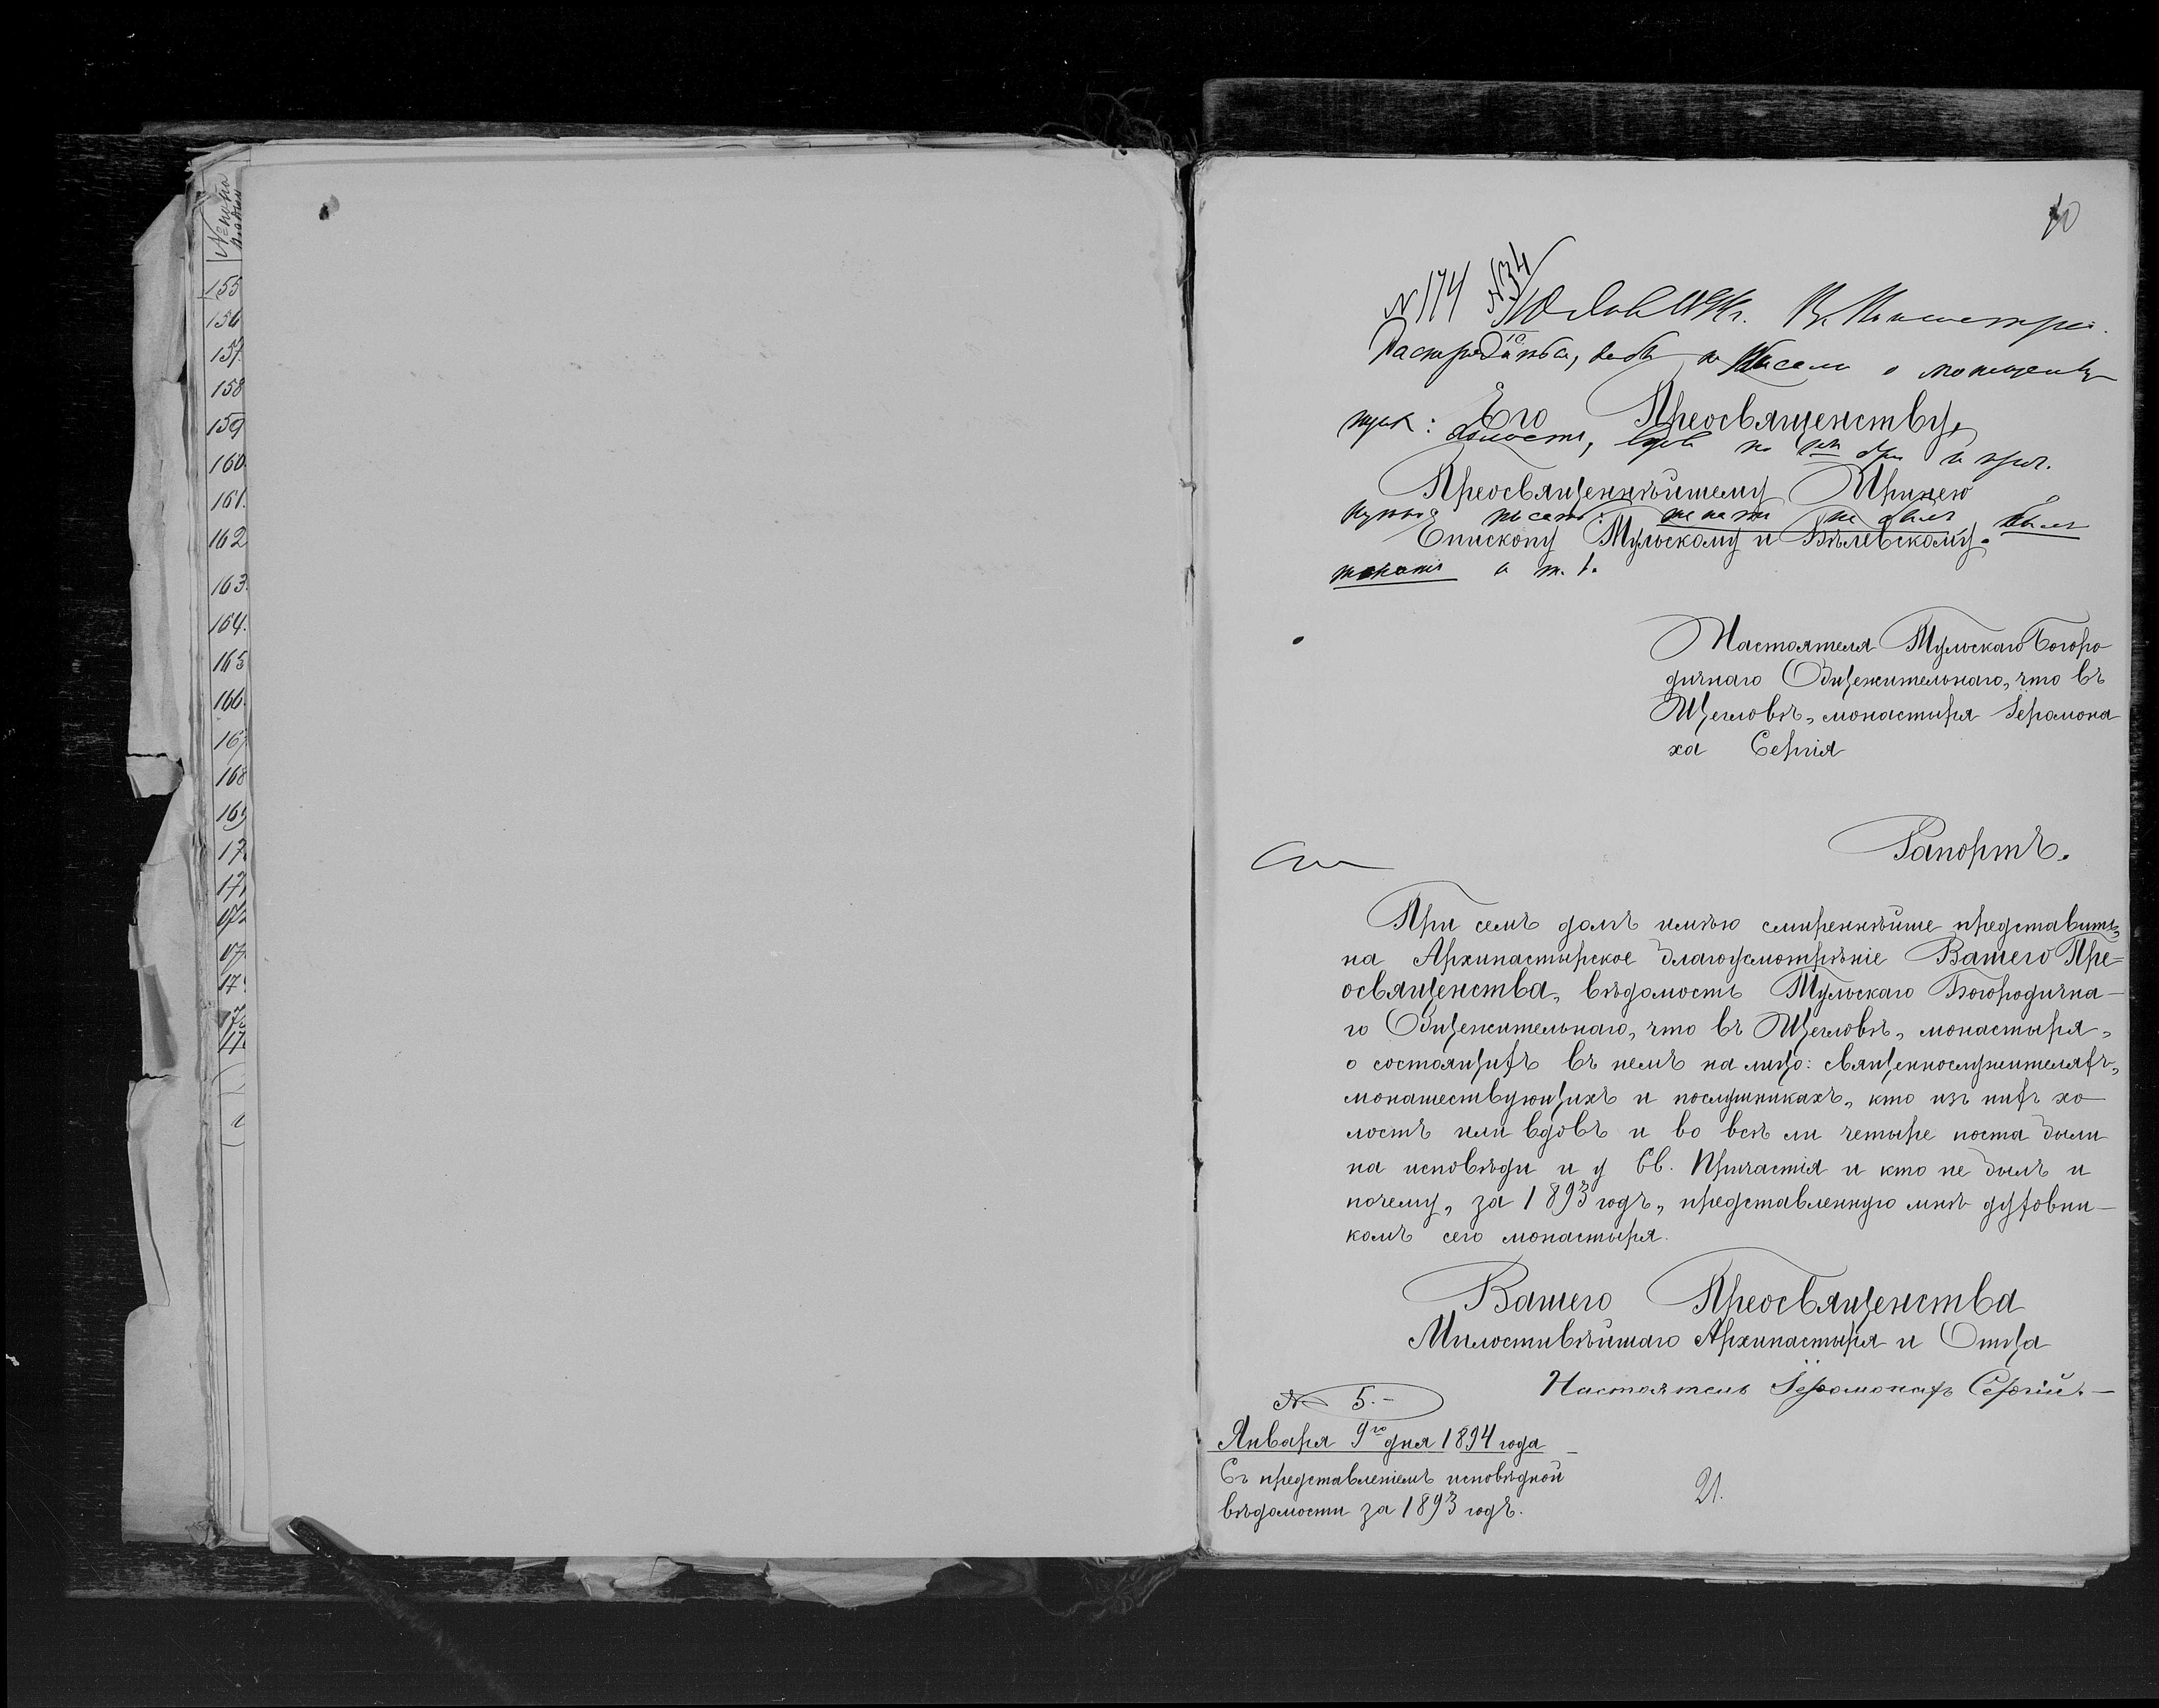 № по по
155
156
157.
158
159
160
161.
162
163.
164.
165
166.
167
168
169
17
171
172
17
17
17
17
10
№ 174 № 34
Его Преосвященству,
Преосвященнѣйшему Иринею
писать: женатъ не былъ, былъ
Епископу Тульскому и Бѣлевскому.
женатъ и т. д.
Настоятеля Тульскаго Богоро
дичнаго Общежительнаго, что въ
Щегловѣ, монастыря Іеромона
ха Сергія
Рапортъ.
При семъ долгъ имѣю смиреннѣйше представить,
на Архипастырское благоусмотрѣніе Вашего Пре=
освященства, вѣдомость Тульскаго Богородична-
го Общежительнаго, что въ Щегловѣ, монастыря,
о состоящихъ въ немъ на лицо: священнослужителяхъ,
монашествующихъ и послушникахъ, кто изъ нихъ хо-
лостъ или вдовъ и во всѣ ли четыре поста были
на исповѣди и у Св. Причастія и кто не былъ и
почему, за 1893 годъ, представленную мнѣ духовни-
комъ сего монастыря.
Вашего Преосвященства
Милостивѣйшаго Архипастыря и Отца
Настоятель Іеромонахъ Сергій.-
№ 5.-
Января 9го дня 1894 года
Съ представленіемъ исповѣдной
вѣдомости за 1893 годъ.
21.